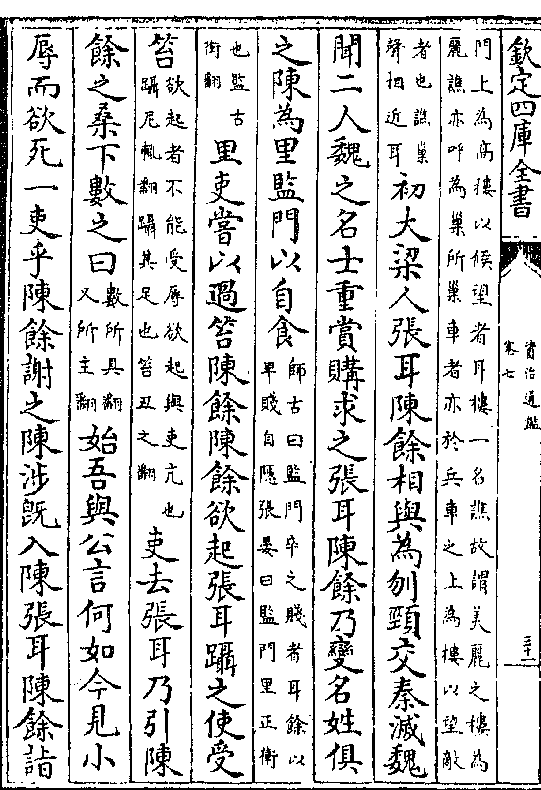 欽定四庫全書
資治通鑑
卷七
門上為高樓以候望者耳樓一名譙故謂美麗之樓為
麗譙亦呼為巢所巢車者亦於兵車之上為樓以望敵
者也譙巢
聲相近耳
初大梁人張耳陳餘相與為刎頸交秦滅魏
聞二人魏之名士重賞購求之張耳陳餘乃變名姓俱
之陳為里監門以自食
師古曰監門卒之賤者耳餘以
卑賤自隱張晏曰監門里正衛
也監古
銜翻
里吏嘗以過笞陳餘陳餘欲起張耳躡之使受
笞
欲起者不能受辱欲起與吏亢也
躡尼輒翻躡其足也笞丑之翻
吏去張耳乃引陳
餘之桑下數之曰
數所具翻
又所主翻
始吾與公言何如今見小
辱而欲死一吏乎陳餘謝之陳涉既入陳張耳陳餘詣